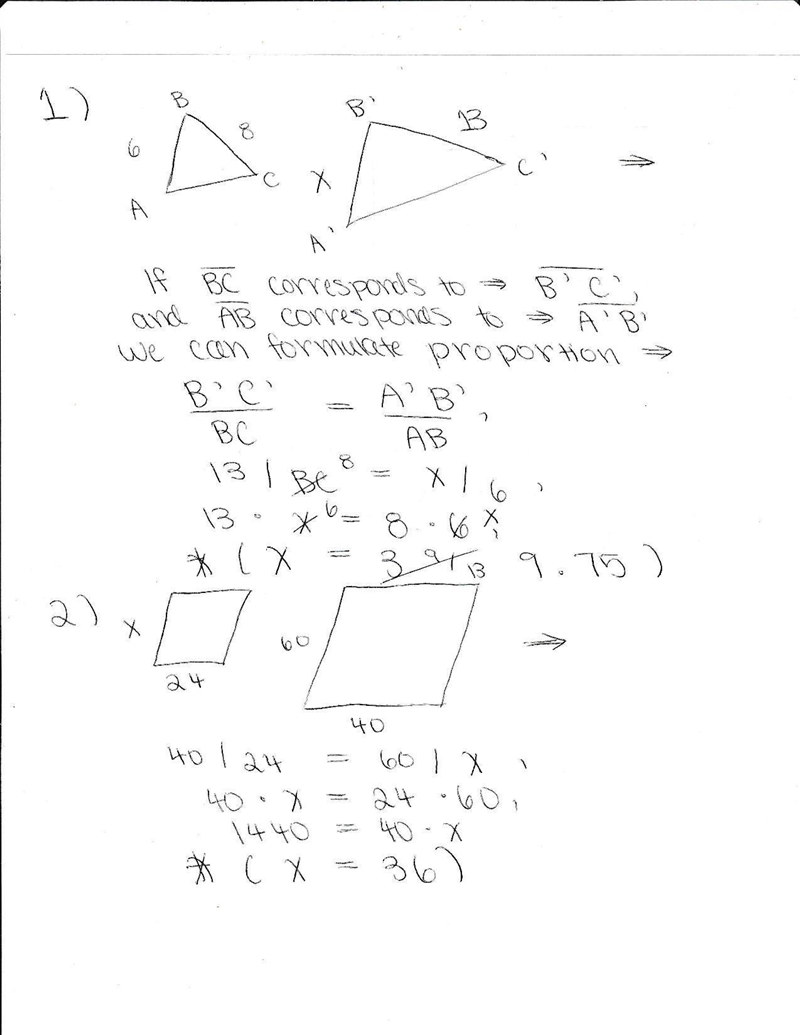 1)
B
8
6
C
A
B'
13
C'
X
A'
⇒
If BC corresponds to ⇒ B'C',
and AB corresponds to ⇒ A'B'
we can formulate proportion ⇒
B'C' / BC = A'B' / AB,
13 / BC 8 = x / 6,
13 · x 6 = 8 · 6 x,
* ( x = 3 9/13 9.75 )
2)
x
24
60
40
⇒
40 / 24 = 60 / x,
40 · x = 24 · 60,
1440 = 40 · x
* ( x = 36 )